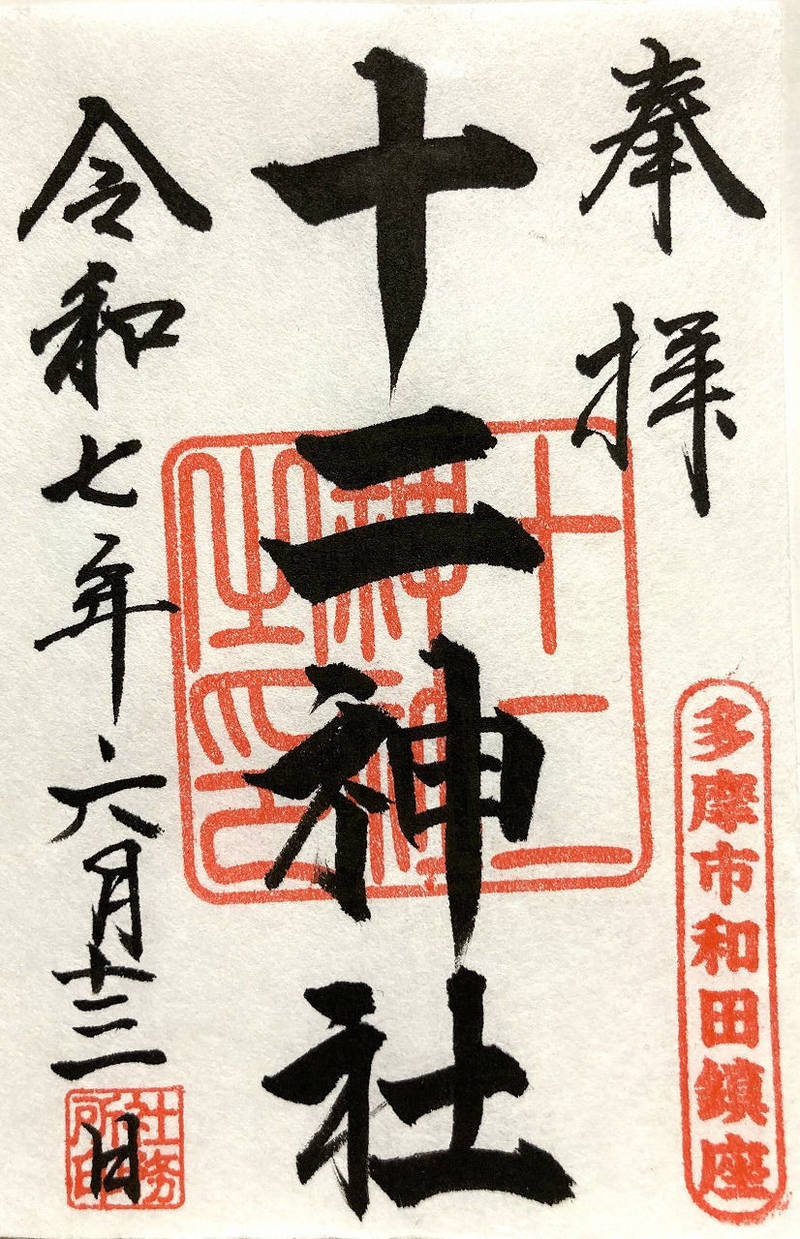 奉拝
多摩市和田鎮座
十二神社
十二神社之印
令和七年六月十三日
社務所印